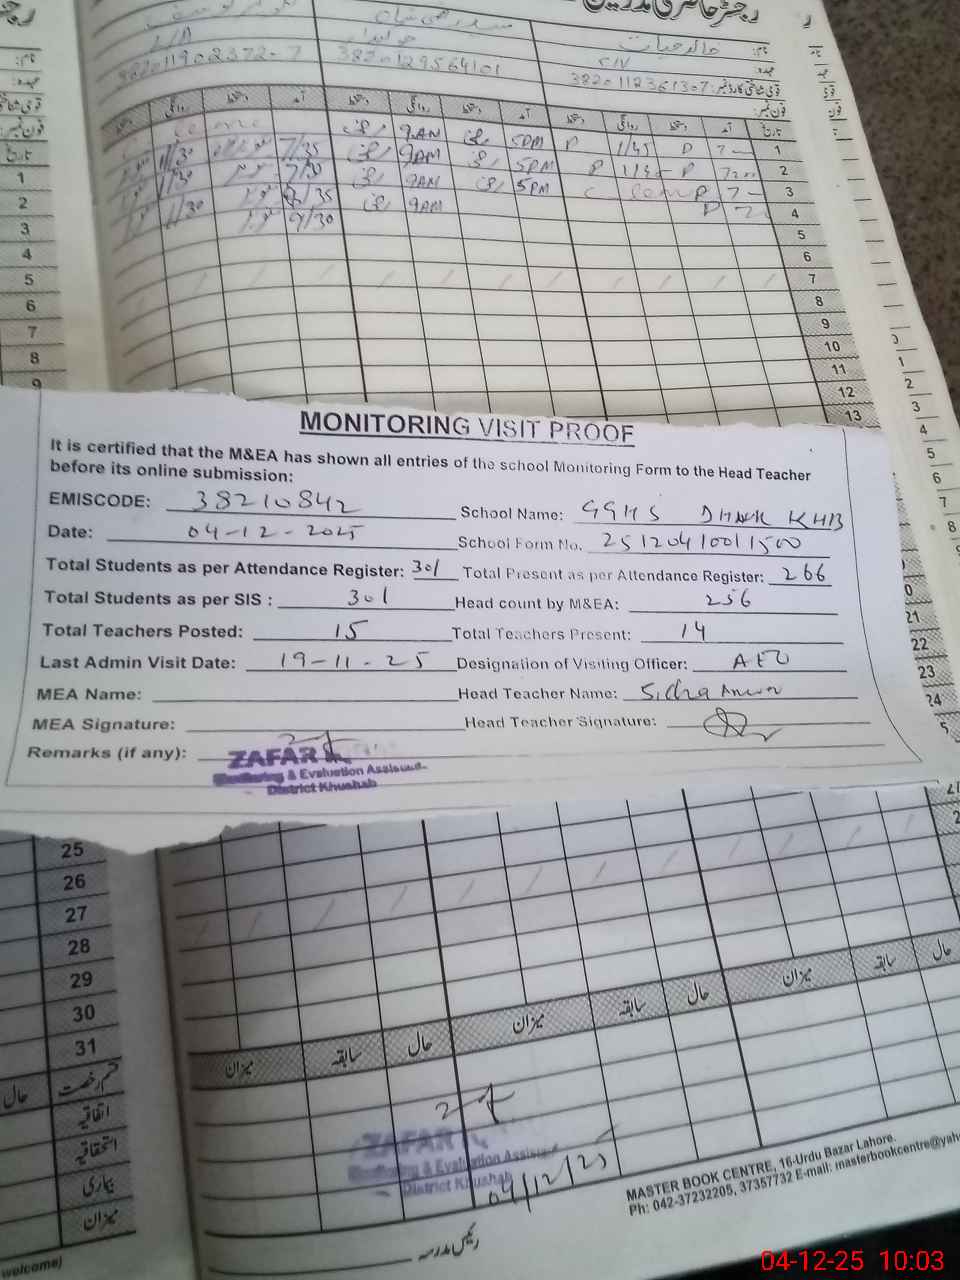 رجسٹر حاضری مدرسین
نام: خالد حیات
عہدہ:
قومی شناختی کارڈ نمبر: 3820112361307
3820129564101
38201190 2372-7
فون نمبر:
تاریخ آمد دستخط روانگی دستخط آمد دستخط روانگی دستخط آمد دستخط روانگی دستخط
1 P 1/45 P 5PM 9AM 7/35 1/30
2 P 1/30 P 5PM 9AM 7/30 1/30
3 P 5PM 9AM 7/35 1/30
4 P 9AM 9/30
5
6
7
8
9
10
11
12
13
MONITORING VISIT PROOF
It is certified that the M&EA has shown all entries of the school Monitoring Form to the Head Teacher
before its online submission:
EMISCODE: 38210842 School Name: GGHS DHAK KHB
Date: 04-12-2025 School Form No. 25120410011500
Total Students as per Attendance Register: 301 Total Present as per Attendance Register: 266
Total Students as per SIS : 301 Head count by M&EA: 256
Total Teachers Posted: 15 Total Teachers Present: 14
Last Admin Visit Date: 19-11-25 Designation of Visiting Officer: AEO
MEA Name: Head Teacher Name: Sidra Anwar
MEA Signature: Head Teacher Signature:
Remarks (if any):
ZAFAR
Monitoring & Evaluation Assistant
District Khushab
25
26
27
28
29
30
31
میزان سابقہ حال میزان سابقہ حال میزان سابقہ حال
قسم رخصت
حال
اتفاقیہ
استحقاقیہ
بیماری
میزان
ZAFAR
Monitoring & Evaluation Assistant
District Khushab
04/12/25
رئیس مدرسہ
MASTER BOOK CENTRE, 16-Urdu Bazar Lahore.
Ph: 042-37232205, 37357732 E-mail: masterbookcentre@yah
welcome)
04-12-25 10:03